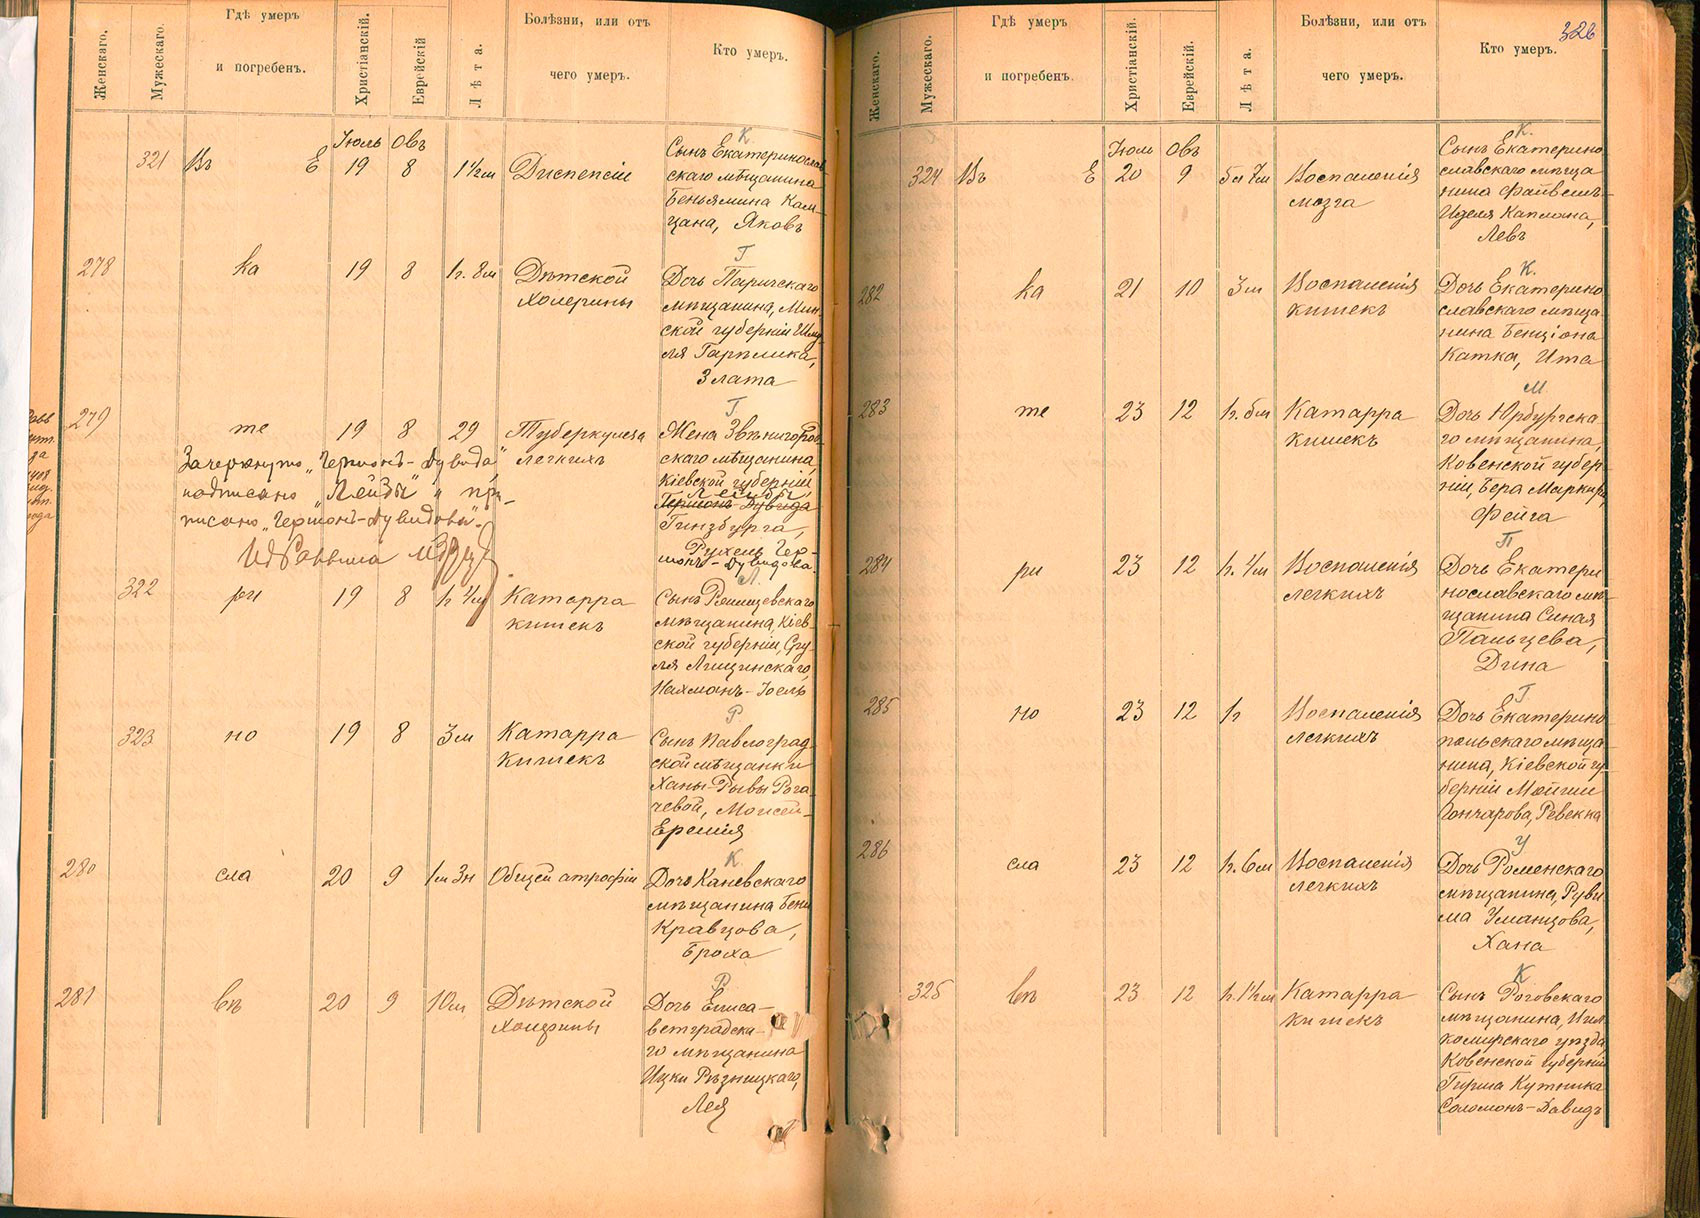 Женскаго.
Мужескаго.
Гдѣ умеръ
и погребенъ.
Христіанскій.
Еврейскій
Лѣта.
Болѣзни, или отъ
чего умеръ.
Кто умеръ.
Іюль Овъ
321 Въ Е 19 8 1½м Диспепсіи
К
Сынъ Екатеринослав-
скаго мѣщанина
Беньямина Кап-
цана, Яковъ
278 ка 19 8 1г. 8м Дѣтской
холерины
Г
Дочь Паричскаго
мѣщанина, Мин-
ской губерніи Шму-
ля Гарелика,
Злата
279 те 19 8 29 Туберкулеза
легкихъ
Зачеркнуто „Гершонъ-Дувида"
надписано „Лейзы" и при-
писано „Гершонъ-Дувидова".
Г
Жена Звѣнигород-
скаго мѣщанина,
Кіевской губерніи
Лейзы
Гершонъ-Дувида
Гинзбурга,
Рухель Гер-
шонъ-Дувидова.
322 ри 19 8 1г 4м Катарра
кишекъ
Л.
Сынъ Ржищевскаго
мѣщанина, Кіев-
ской губерніи, Сру-
ля Лищинскаго,
Нахманъ-Іоель
323 но 19 8 3м Катарра
кишекъ
Р
Сынъ Павлоград-
ской мѣщанки
Ханы-Рывы Рога-
чевой, Моисей-
Еремія
280 сла 20 9 1м 3н Общей атрофіи
К
Дочь Каневскаго
мѣщанина Бени
Кравцова,
Броха
281 въ 20 9 10м Дѣтской
холерины
Р
Дочь Елиса-
ветградска-
го мѣщанина
Ицки Рѣзницкаго,
Лея
326
Женскаго.
Мужескаго.
Гдѣ умеръ
и погребенъ.
Христіанскій.
Еврейскій.
Лѣта.
Болѣзни, или отъ
чего умеръ.
Кто умеръ.
Іюль Овъ
324 Въ Е 20 9 5л 7м Воспаленія
мозга
К.
Сынъ Екатерино
славскаго мѣща
нина Файвешъ-
Иделя Каплана,
Левъ
282 ка 21 10 3м Воспаленія
кишекъ
К.
Дочь Екатерино
славскаго мѣща
нина Бенціона
Катка, Ита
283 те 23 12 1г. 5м Катарра
кишекъ
М
Дочь Юрбургска-
го мѣщанина,
Ковенской губер-
ніи, Бера
Фейга
284 ри 23 12 1г. 4м Воспаленія
легкихъ
П
Дочь Екатери
нославскаго мѣ-
щанина Синая
Пальцева,
Дина
285 но 23 12 1г Воспаленія
легкихъ
Г
Дочь Екатерино-
польскаго мѣща-
нина, Кіевской гу-
берніи
Гончарова, Ревекка
286 сла 23 12 1г. 6м Воспаленія
легкихъ
У
Дочь Роменскаго
мѣщанина, Руви-
ма Уманцова,
Хана
325 въ 23 12 1г. 1½м Катарра
кишекъ
К
Сынъ Роговскаго
мѣщанина, Вил-
комирскаго уѣзда
Ковенской губерніи
Гирша Кутника
Соломонъ-Давидъ